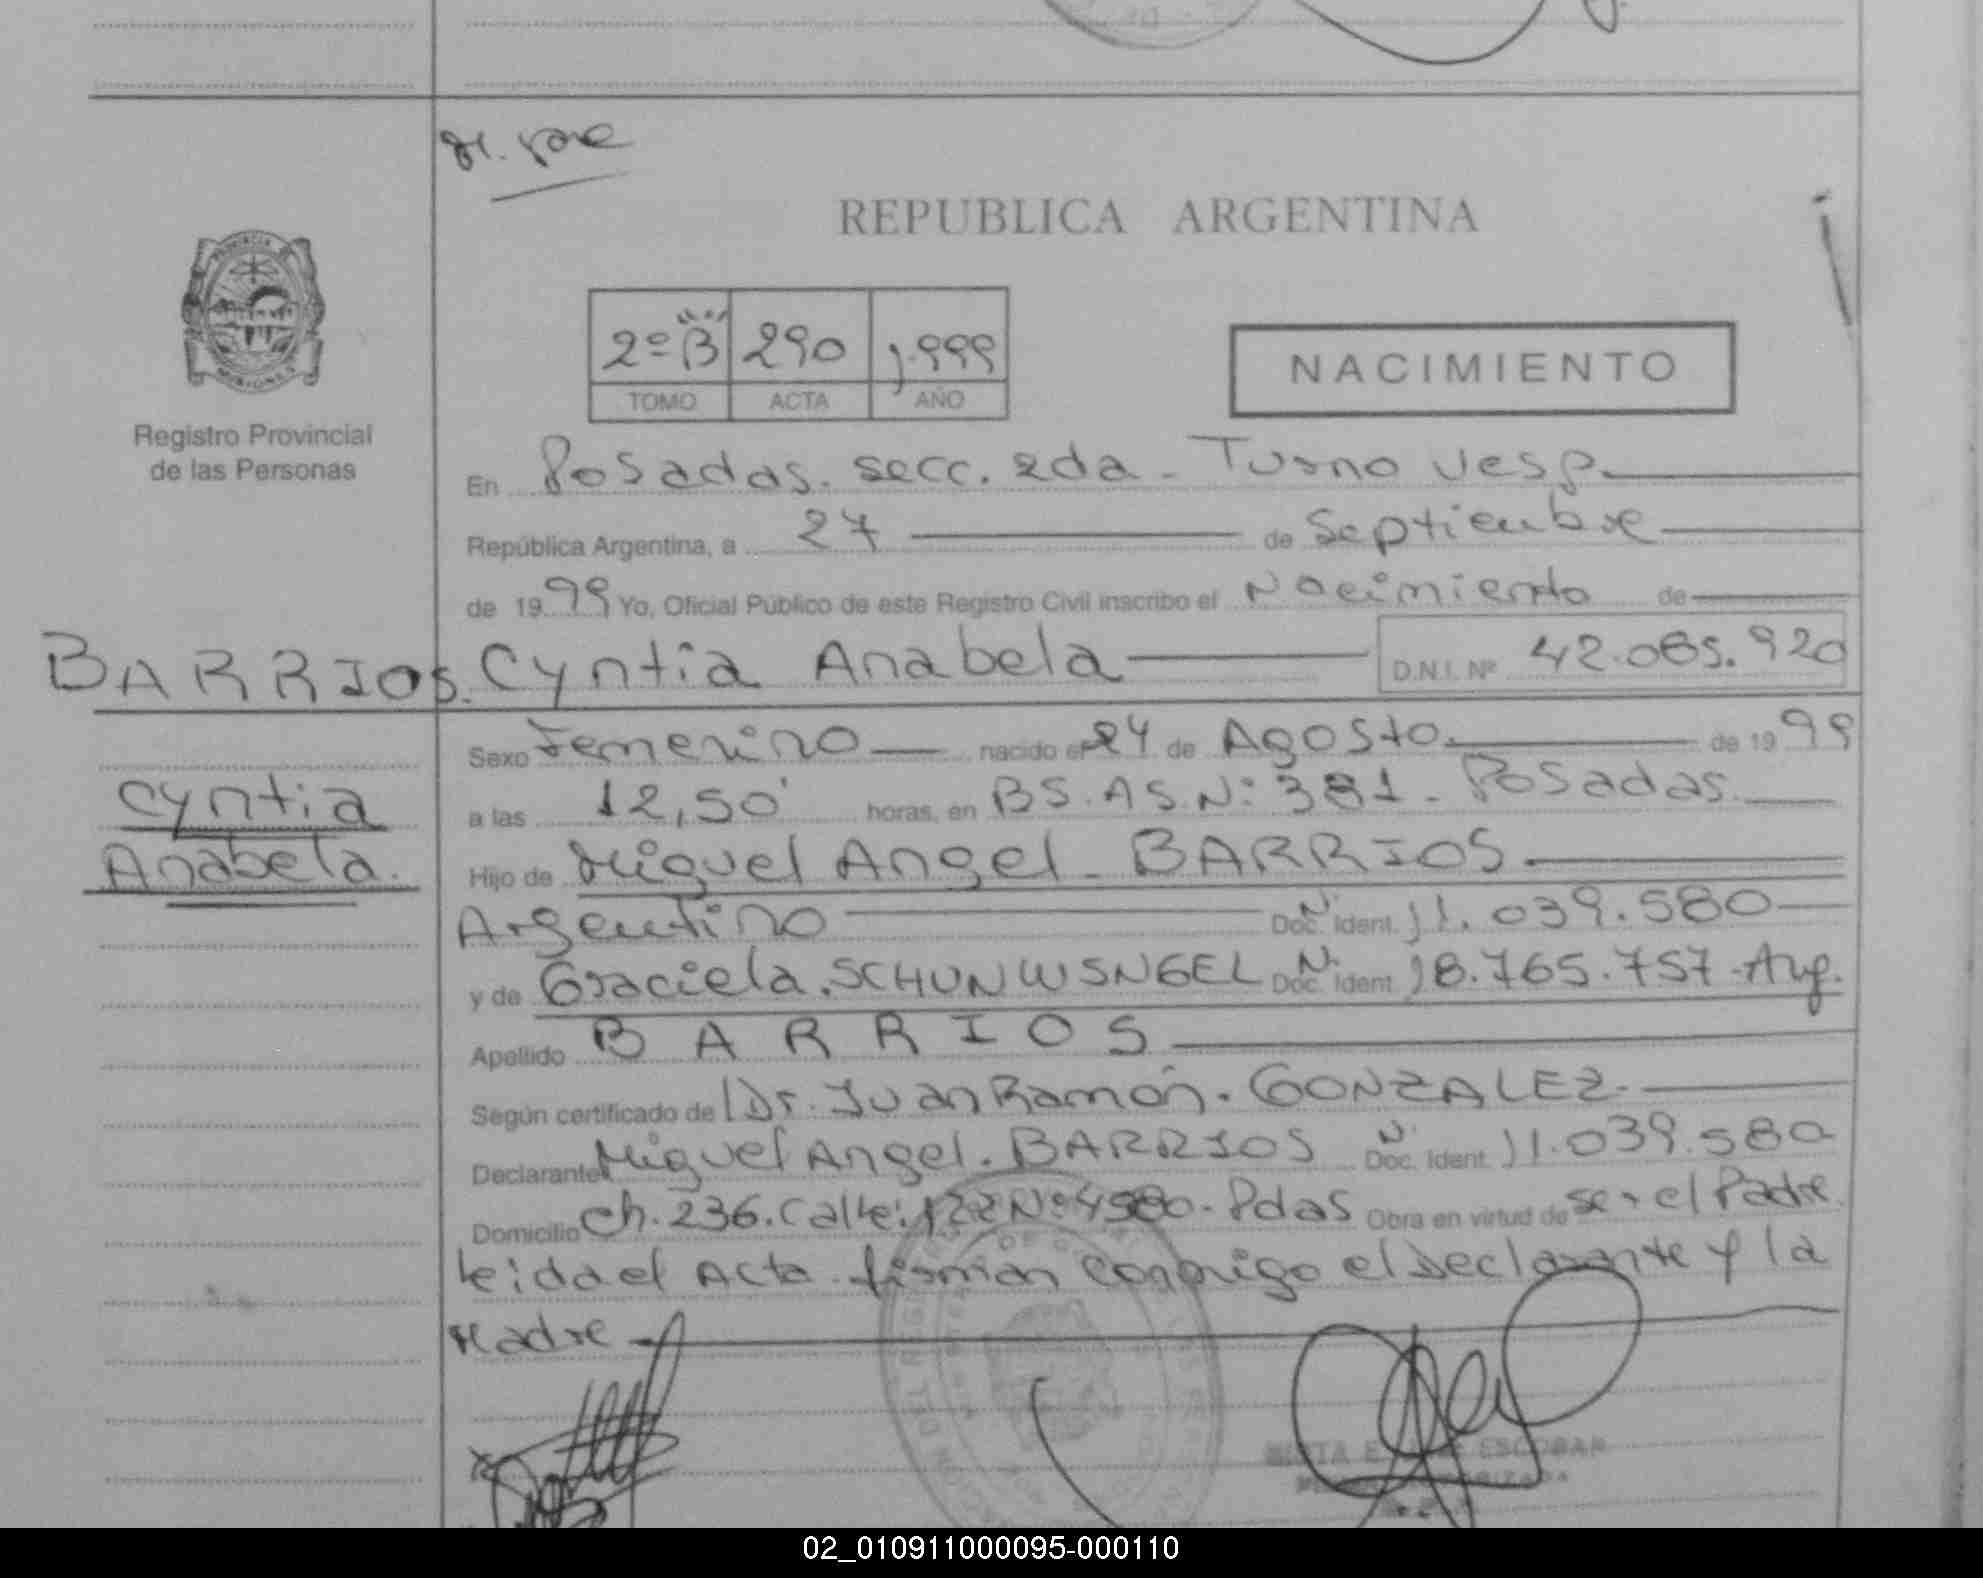 REPUBLICA ARGENTINA
2º B 290 1.999
TOMO ACTA AÑO
NACIMIENTO
Registro Provincial
de las Personas
En Posadas. secc. 2da - Turno Vesp.
República Argentina, a 27 de Septiembre
de 1999 Yo, Oficial Público de este Registro Civil inscribo el Nacimiento de
BARRIOS. Cyntia Anabela D.N.I. Nº 42.085.920
Cyntia
Anabela.
Sexo Femenino nacido el 24 de Agosto. de 1999
a las 12,50' horas, en BS.AS.Nº 381 - Posadas.
Hijo de Miguel Angel - BARRIOS.
Argentino Nº Doc. Ident. 11.039.580
y de Graciela. SCHUNWSNGEL Nº Doc. Ident. 18.765.757-Arg.
Apellido BARRIOS
Según certificado de Dr. Juan Ramón. GONZALEZ.
Declarante Miguel Angel. BARRIOS Nº Doc. Ident. 11.039.580
Domicilio Ch. 236. Calle: 122 Nº 4580. Pdas Obra en virtud de ser el Padre.
leida el Acta firman conmigo el Declarante y la
Madre
ESCOBAR
02_010911000095-000110